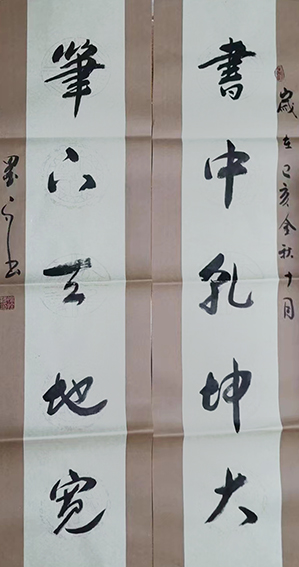 歲在己亥金秋十月
書中乾坤大
筆下天地寬